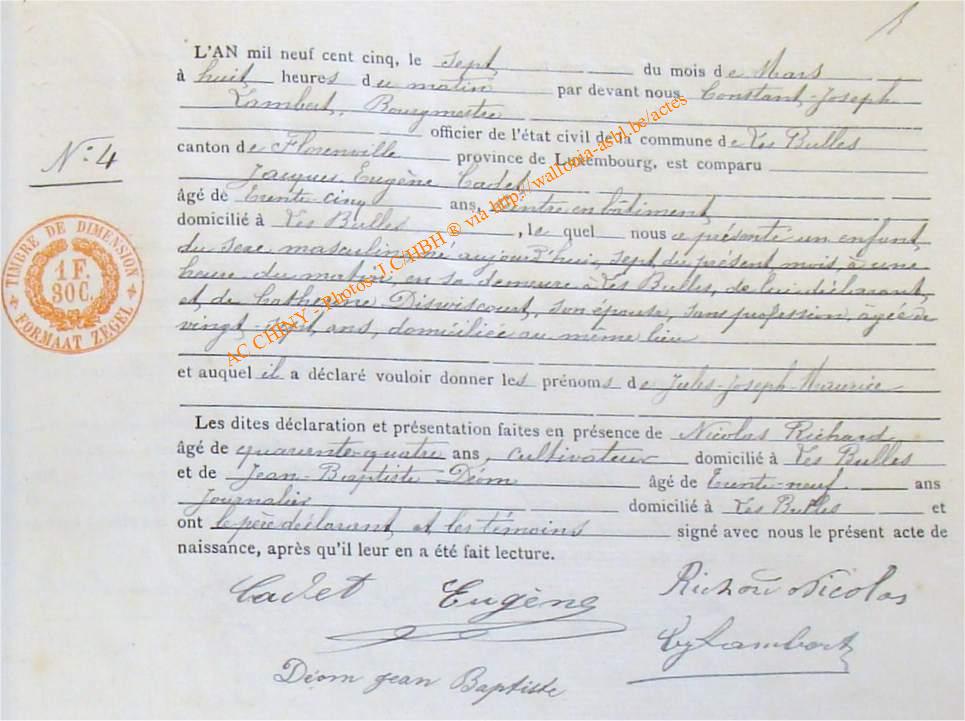 L'AN mil neuf cent cinq, le sept du mois de Mars
à huit heures du matin par devant nous Constant-Joseph
Lambert, Bourgmestre
officier de l'état civil de la commune de Les Bulles
N° 4
canton de Florenville province de Luxembourg, est comparu
Jacques Eugène Cadet
âgé de trente-cinq ans, peintre en bâtiment
domicilié à Les Bulles, le quel nous a présenté un enfant
du sexe masculin, né aujourd'hui, sept du présent mois, à une
heure du matin, en sa demeure à Les Bulles, de lui déclarant,
et de Catherine Disviscourt, son épouse, sans profession, âgée de
vingt-sept ans, domiciliée au même lieu
et auquel il a déclaré vouloir donner les prénoms de Jules-Joseph-Maurice
Les dites déclaration et présentation faites en présence de Nicolas Richard
âgé de quarante-quatre ans, cultivateur domicilié à Les Bulles
et de Jean-Baptiste Déom âgé de trente-neuf ans
journalier domicilié à Les Bulles et
ont le père déclarant, et les témoins signé avec nous le présent acte de
naissance, après qu'il leur en a été fait lecture.
Cadet Eugène
Nicolas
Lambert
Déom jean Baptiste
TIMBRE DE DIMENSION
1 F.
30 C.
FORMAAT ZEGEL
AC CHINY - Photos J.C/HBH ® via http://wallonia-asbl.be/actes